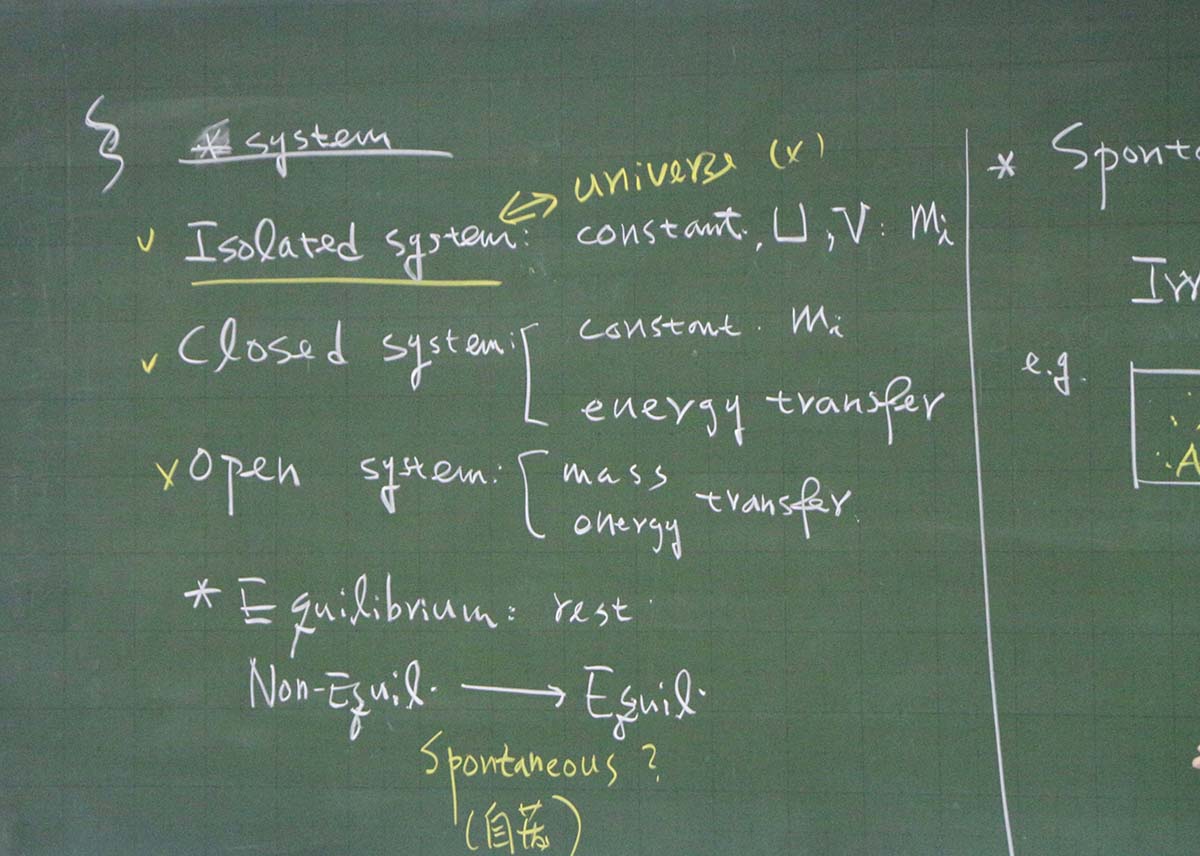 * system
universe (x)
✓ Isolated system: constant, U, V: Mi
✓ Closed system: constant. Mi
energy transfer
x Open system: mass
energy transfer
* Equilibrium: rest.
Non-Equil. → Equil.
Spontaneous?
(自發)
* Sponta
Irr
e.g.
A